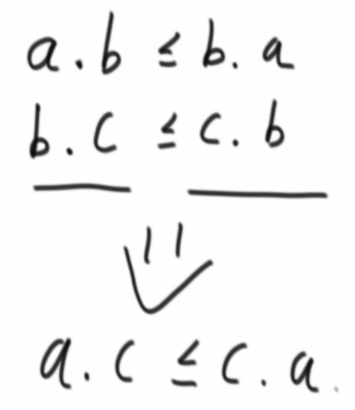 a.b ≤ b.a
b.c ≤ c.b
⇓
a.c ≤ c.a.